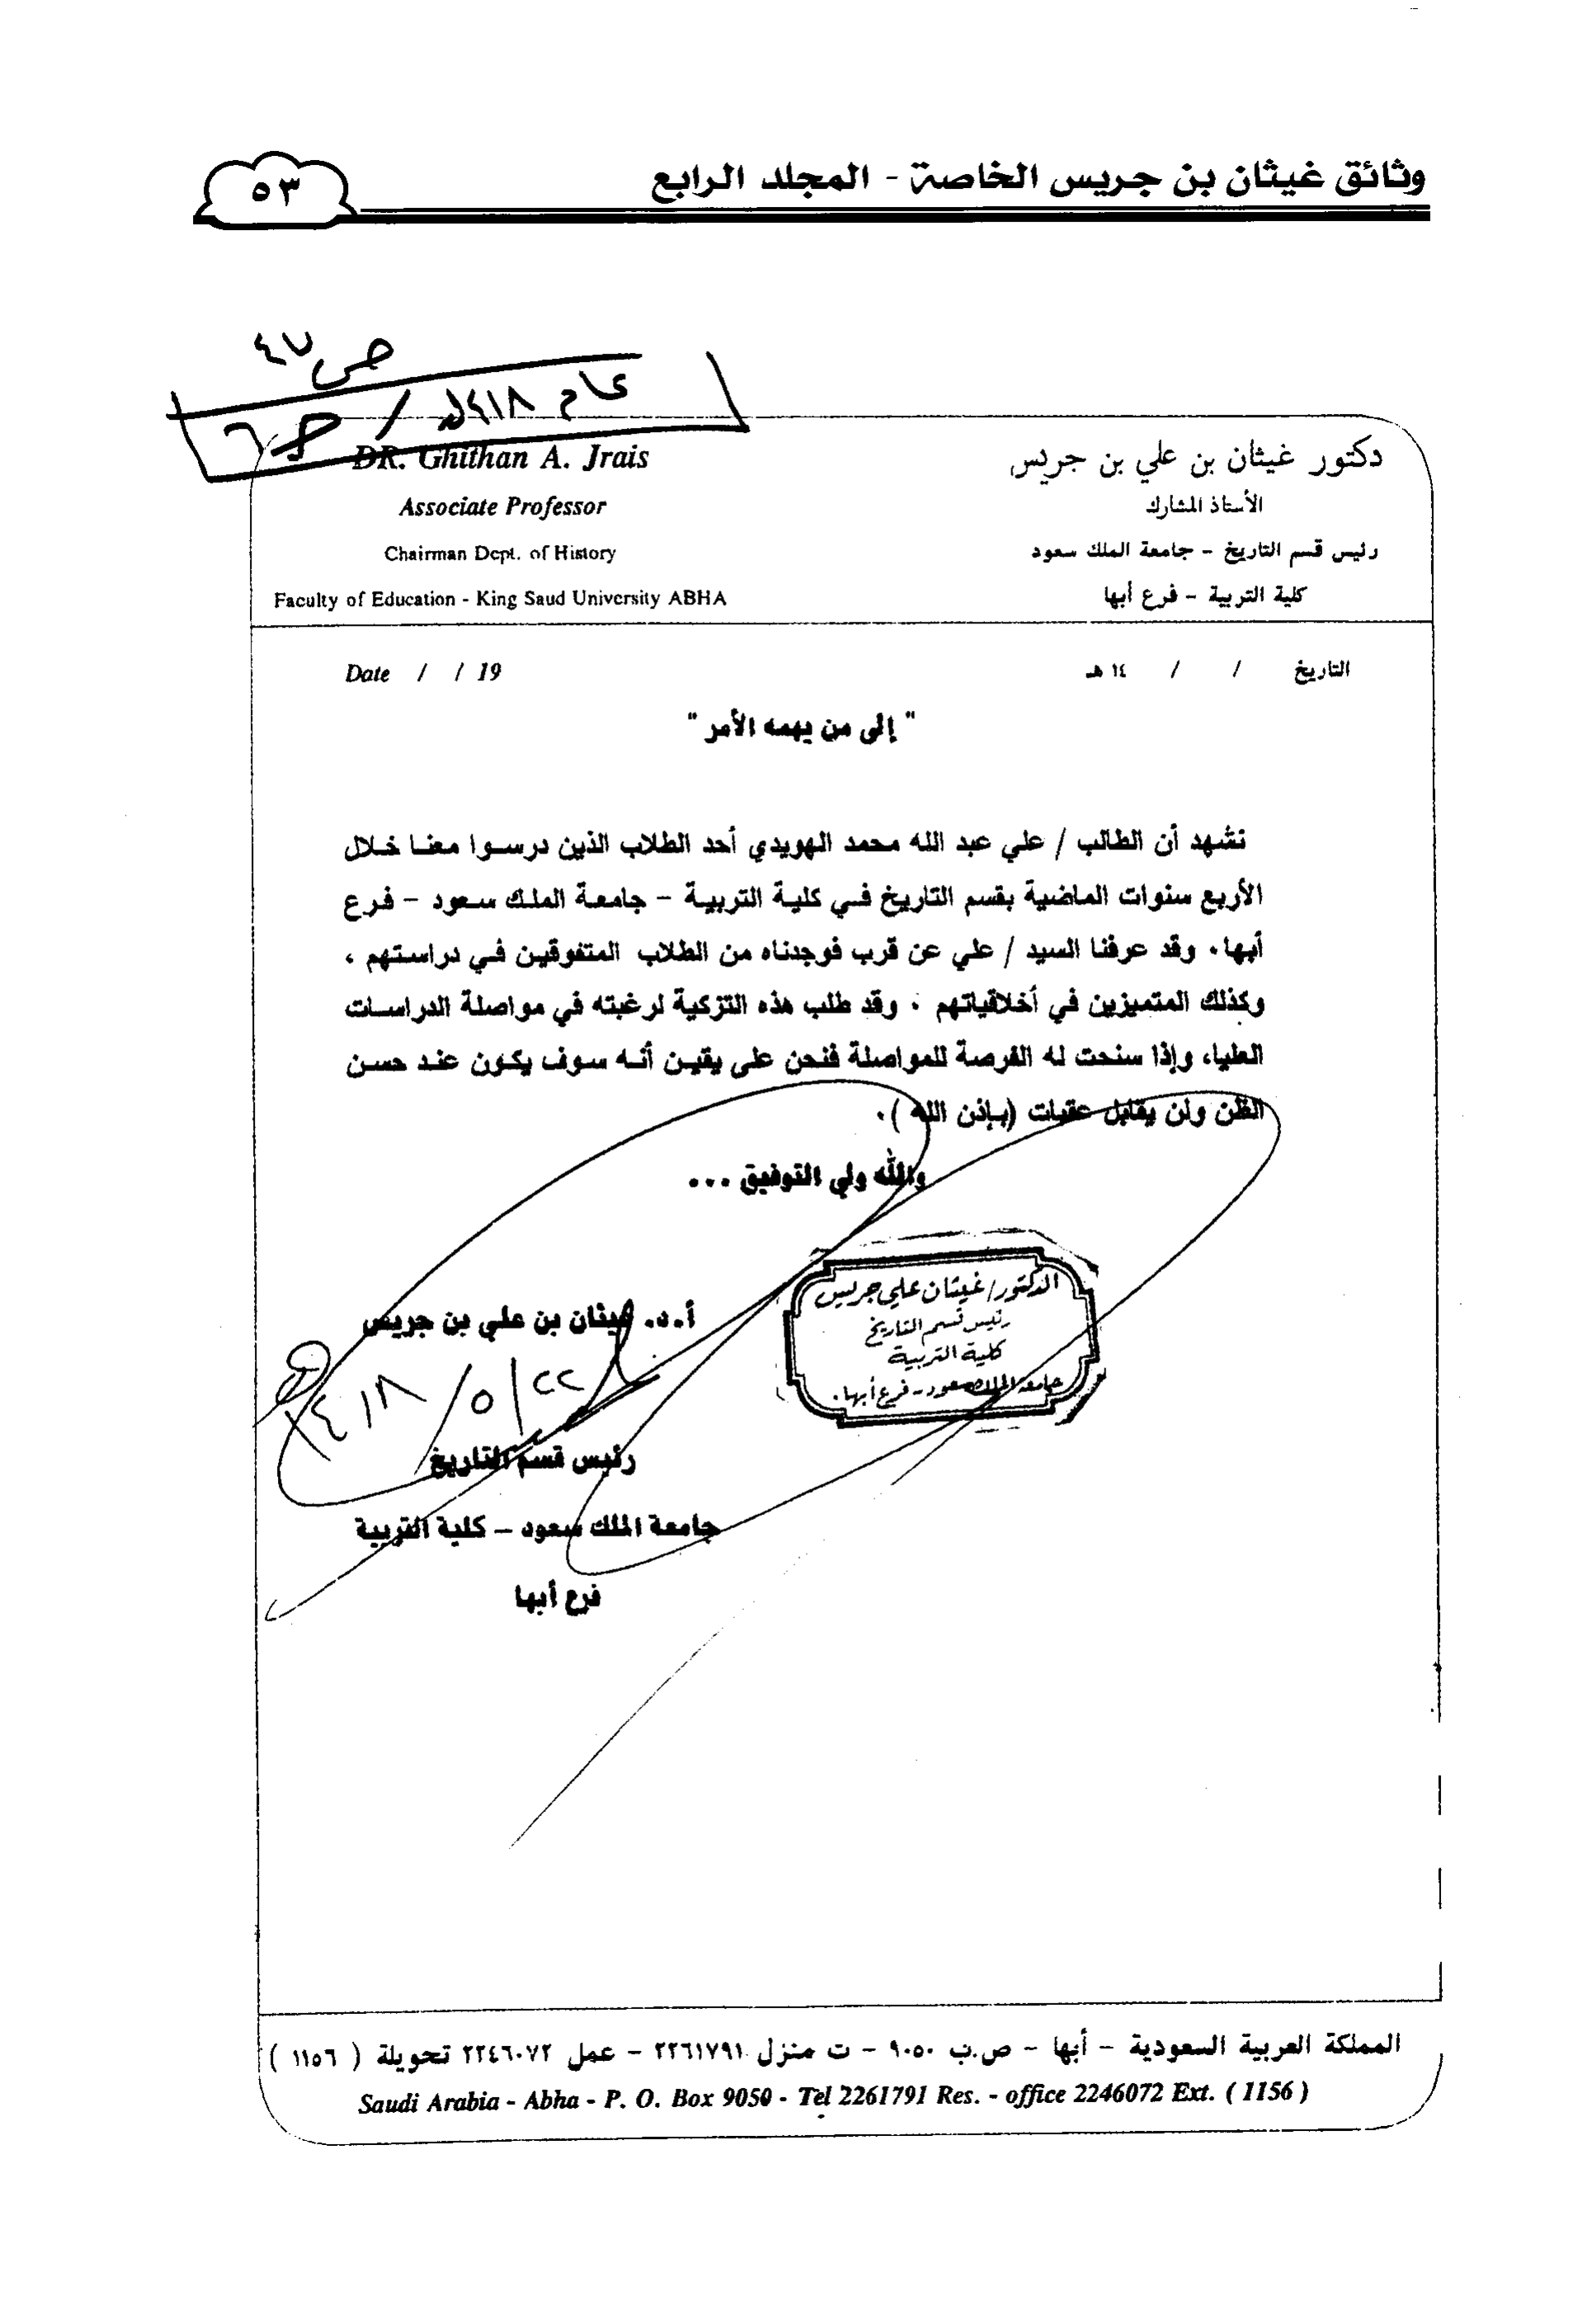 وثائق غيثان بن جريس الخاصة - المجلد الرابع
٥٣
ص ٤٧
عام ١٤١٨هـ / ج٦
دكتور غيثان بن علي بن جريس
الأستاذ المشارك
رئيس قسم التاريخ - جامعة الملك سعود
كلية التربية - فرع أبها
DR. Ghithan A. Jrais
Associate Professor
Chairman Dept. of History
Faculty of Education - King Saud University ABHA
التاريخ / / ١٤ هـ
Date / / 19
" إلى من يهمه الأمر "
نشهد أن الطالب / علي عبد الله محمد الهويدي أحد الطلاب الذين درسوا معنا خلال
الأربع سنوات الماضية بقسم التاريخ في كلية التربية - جامعة الملك سعود - فرع
أبها. وقد عرفنا السيد / علي عن قرب فوجدناه من الطلاب المتفوقين في دراستهم ،
وكذلك المتميزين في أخلاقياتهم . وقد طلب هذه التزكية لرغبته في مواصلة الدراسات
العليا، وإذا سنحت له الفرصة للمواصلة فنحن على يقين أنه سوف يكون عند حسن
الظن ولن يقابل عقبات (بإذن الله ).
والله ولي التوفيق ...
الدكتور/ غيثان علي جريس
رئيس قسم التاريخ
كلية التربية
جامعة الملك سعود - فرع أبها.
أ.د. غيثان بن علي بن جريس
٢٢/٥/١٤١٨هـ
رئيس قسم التاريخ
جامعة الملك سعود - كلية التربية
فرع أبها
المملكة العربية السعودية - أبها - ص.ب ٩٠٥٠ - ت منزل ٢٢٦١٧٩١ - عمل ٢٢٤٦٠٧٢ تحويلة ( ١١٥٦ )
Saudi Arabia - Abha - P. O. Box 9050 - Tel 2261791 Res. - office 2246072 Ext. ( 1156 )